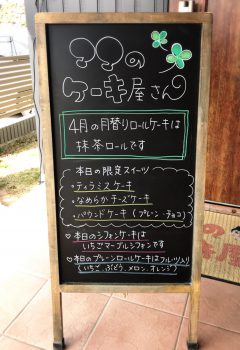 ママの
ケーキ屋さん
4月の月替りロールケーキは
抹茶ロールです
本日の限定スイーツ
・ティラミスケーキ
・なめらかチーズケーキ
・パウンドケーキ(プレーン・チョコ)
♡本日のシフォンケーキは
いちごマーブルシフォンです
♡本日のプレーンロールケーキはフルーツ入り
(いちご、ぶどう、メロン、オレンジ)